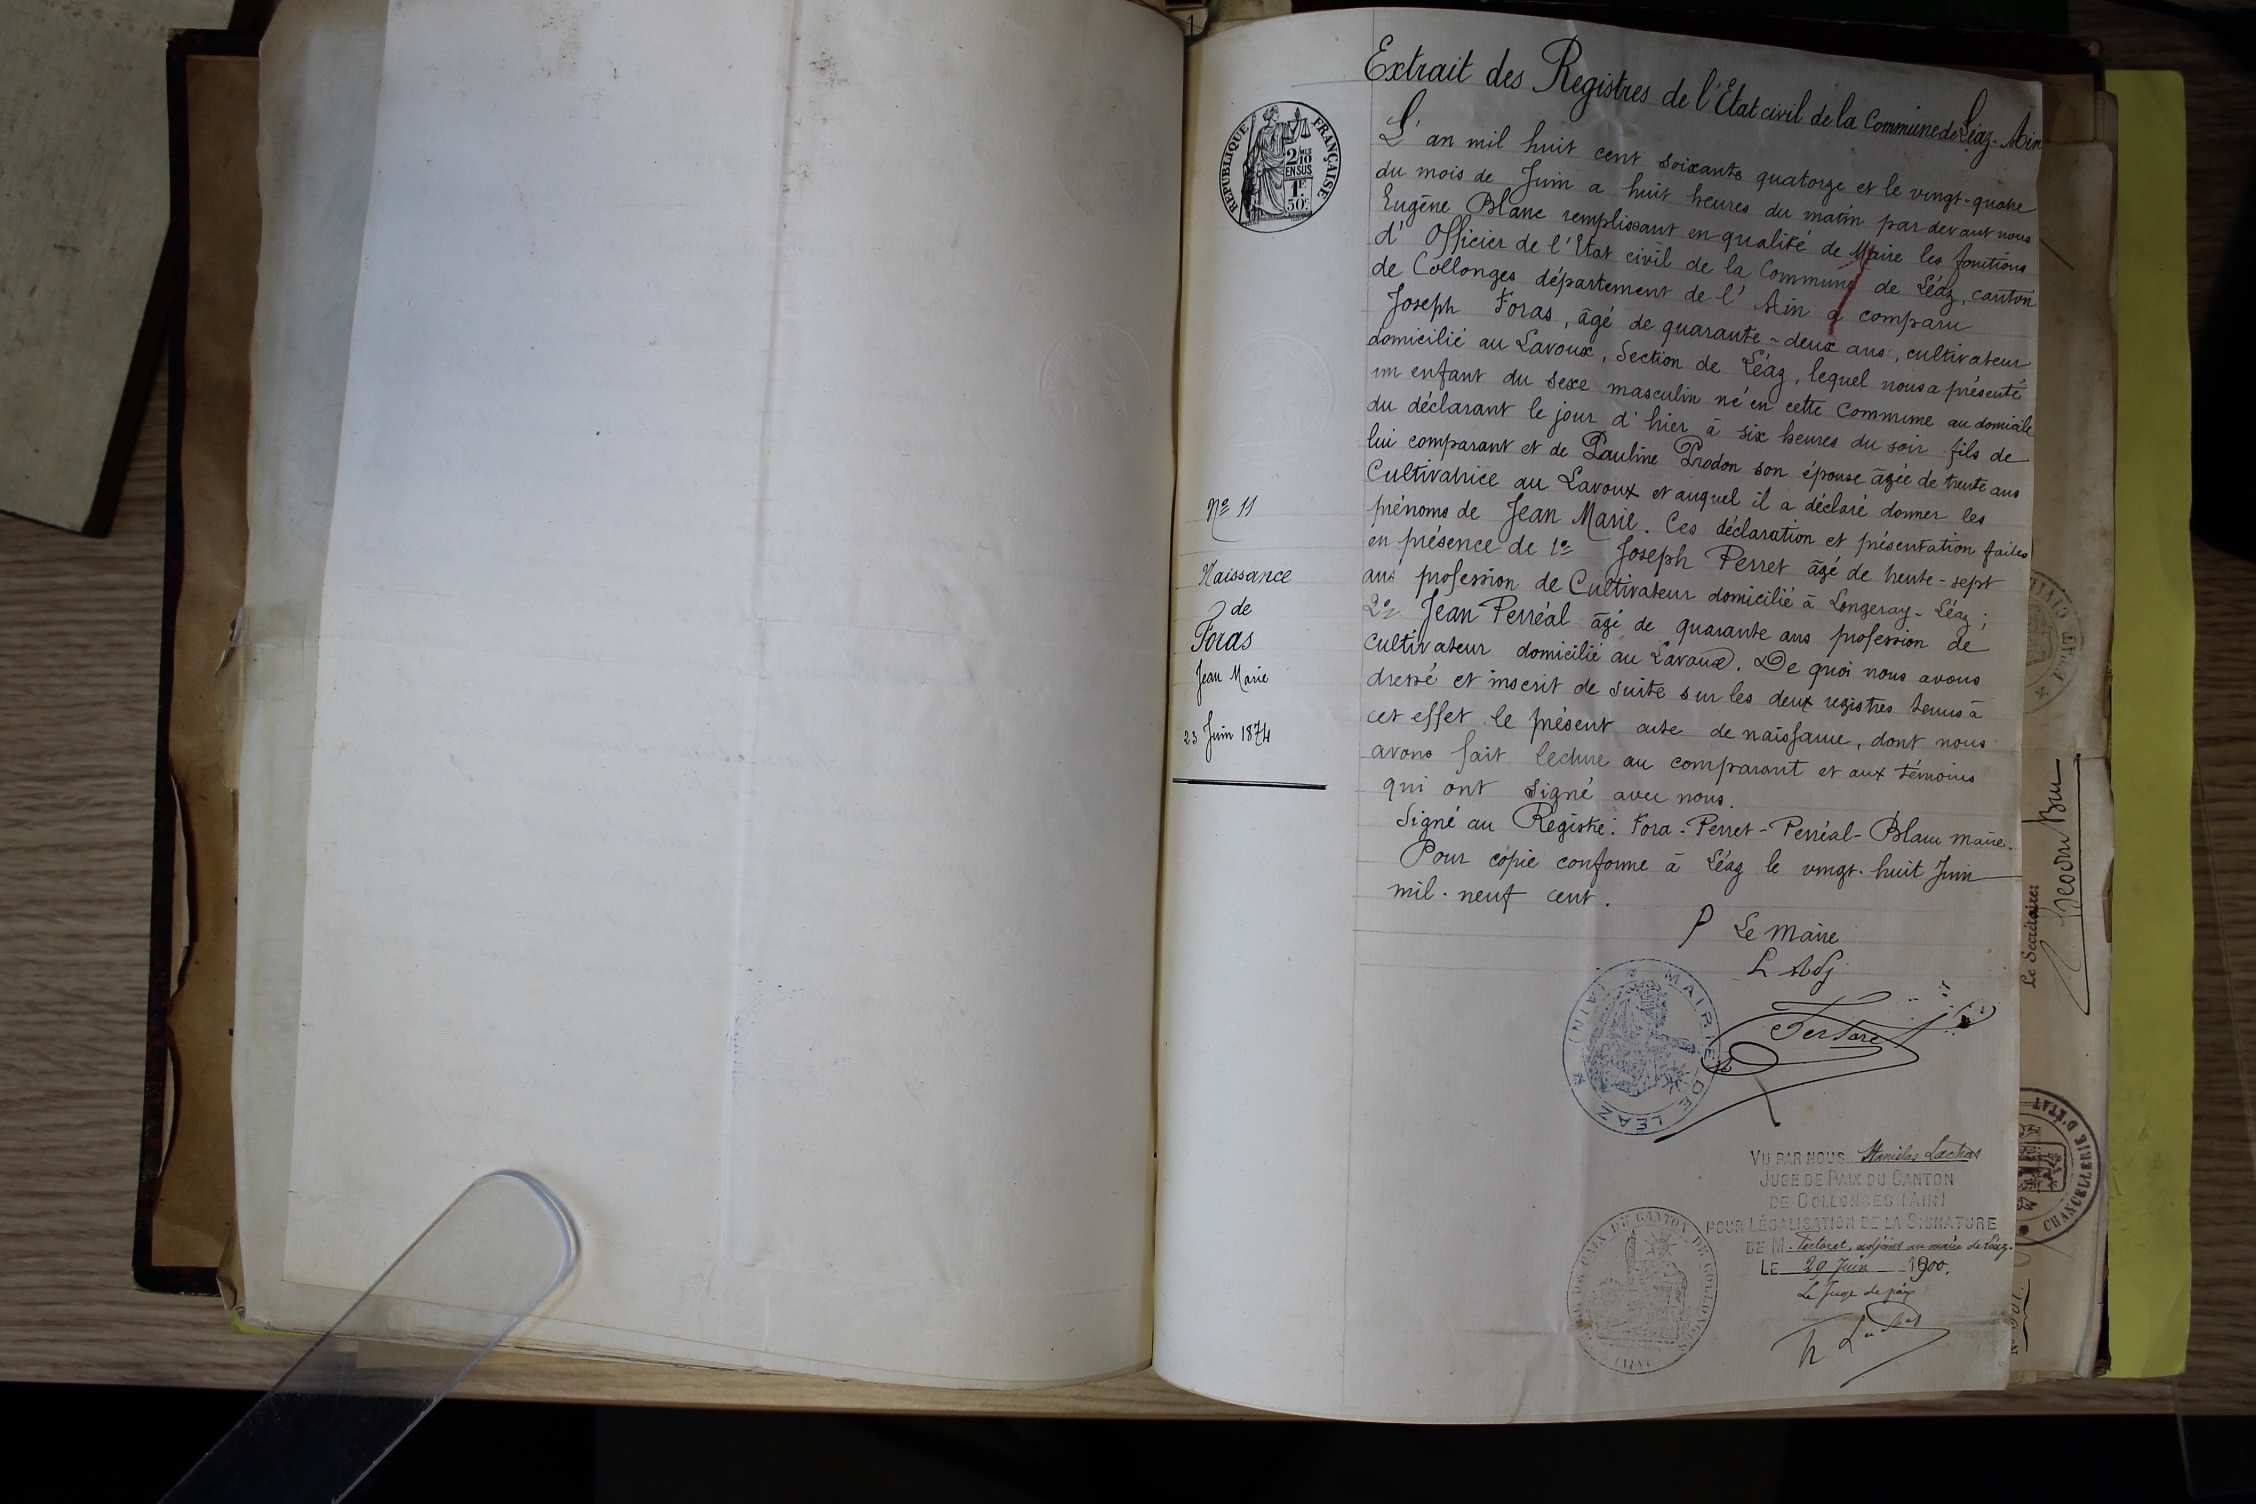 Extrait des Registres de l'Etat civil de la Commune de Léaz - Ain
RÉPUBLIQUE FRANÇAISE
2/10 EN SUS
1F 50c
L'an mil huit cent soixante quatorze et le vingt-quatre
du mois de Juin a huit heures du matin par devant nous
Eugène Blanc remplissant en qualité de Maire les fonctions
d'Officier de l'Etat civil de la Commune de Léaz, canton
de Collonges département de l'Ain a comparu
Joseph Foras, âgé de quarante-deux ans, cultivateur
domicilié au Lavoux, Section de Léaz, lequel nous a présenté
un enfant du sexe masculin né en cette Commune au domicile
du déclarant le jour d'hier à six heures du soir fils de
lui comparant et de Pauline Prodon son épouse âgée de trente ans
Cultivatrice au Lavoux et auquel il a déclaré donner les
prénoms de Jean Marie. Ces déclaration et présentation faites
en présence de 1º Joseph Perret âgé de trente-sept
ans profession de Cultivateur domicilié à Longeray-Léaz;
2º Jean Perréal âgé de quarante ans profession de
cultivateur domicilié au Lavoux. De quoi nous avons
dressé et inscrit de suite sur les deux registres tenus à
cet effet le présent acte de naissance, dont nous
avons fait lecture au comparant et aux témoins
qui ont signé avec nous.
Signé au Registre: Fora - Perret - Perréal - Blanc maire.
Pour copie conforme à Léaz le vingt-huit Juin
mil-neuf cent.
Nº 11
Naissance
de
Foras
Jean Marie
23 Juin 1874
P Le Maire
L Adj
MAIRIE DE LEAZ (AIN)
VU PAR NOUS Stanislas Lachat
JUGE DE PAIX DU CANTON
DE COLLONGES (AIN)
POUR LÉGALISATION DE LA SIGNATURE
DE M. Tertaret, adjoint au maire de Léaz.
LE 29 Juin 1900.
Le Juge de paix
Le Secrétaire:
CHANCELLERIE D'ÉTAT